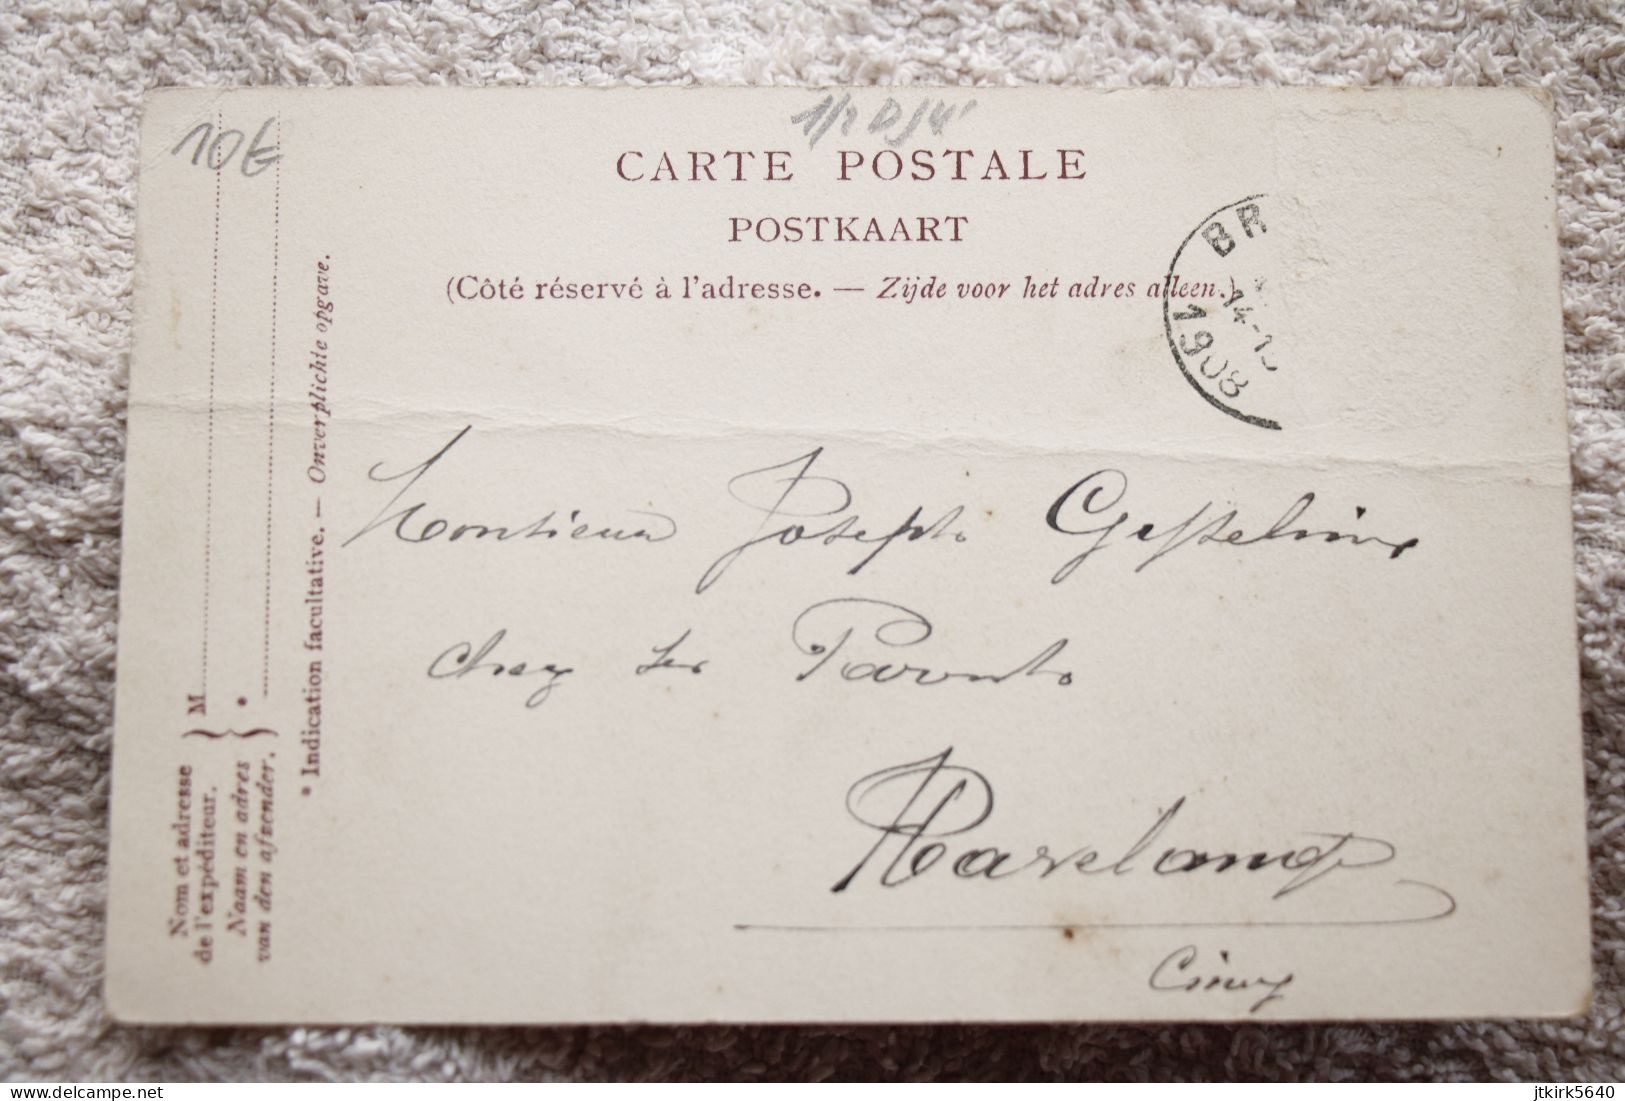 10€
CARTE POSTALE
POSTKAART
(Côté réservé à l'adresse. — Zijde voor het adres alleen.)
BR
14-1
1908
Monsieur Joseph
chez ses Parents
Havelange
Ciney
Nom et adresse
de l'expéditeur.
Naam en adres
van den afzender.
} M
} *
* Indication facultative. — Onverplichte opgave.
delcampe.net
jtkirk5640